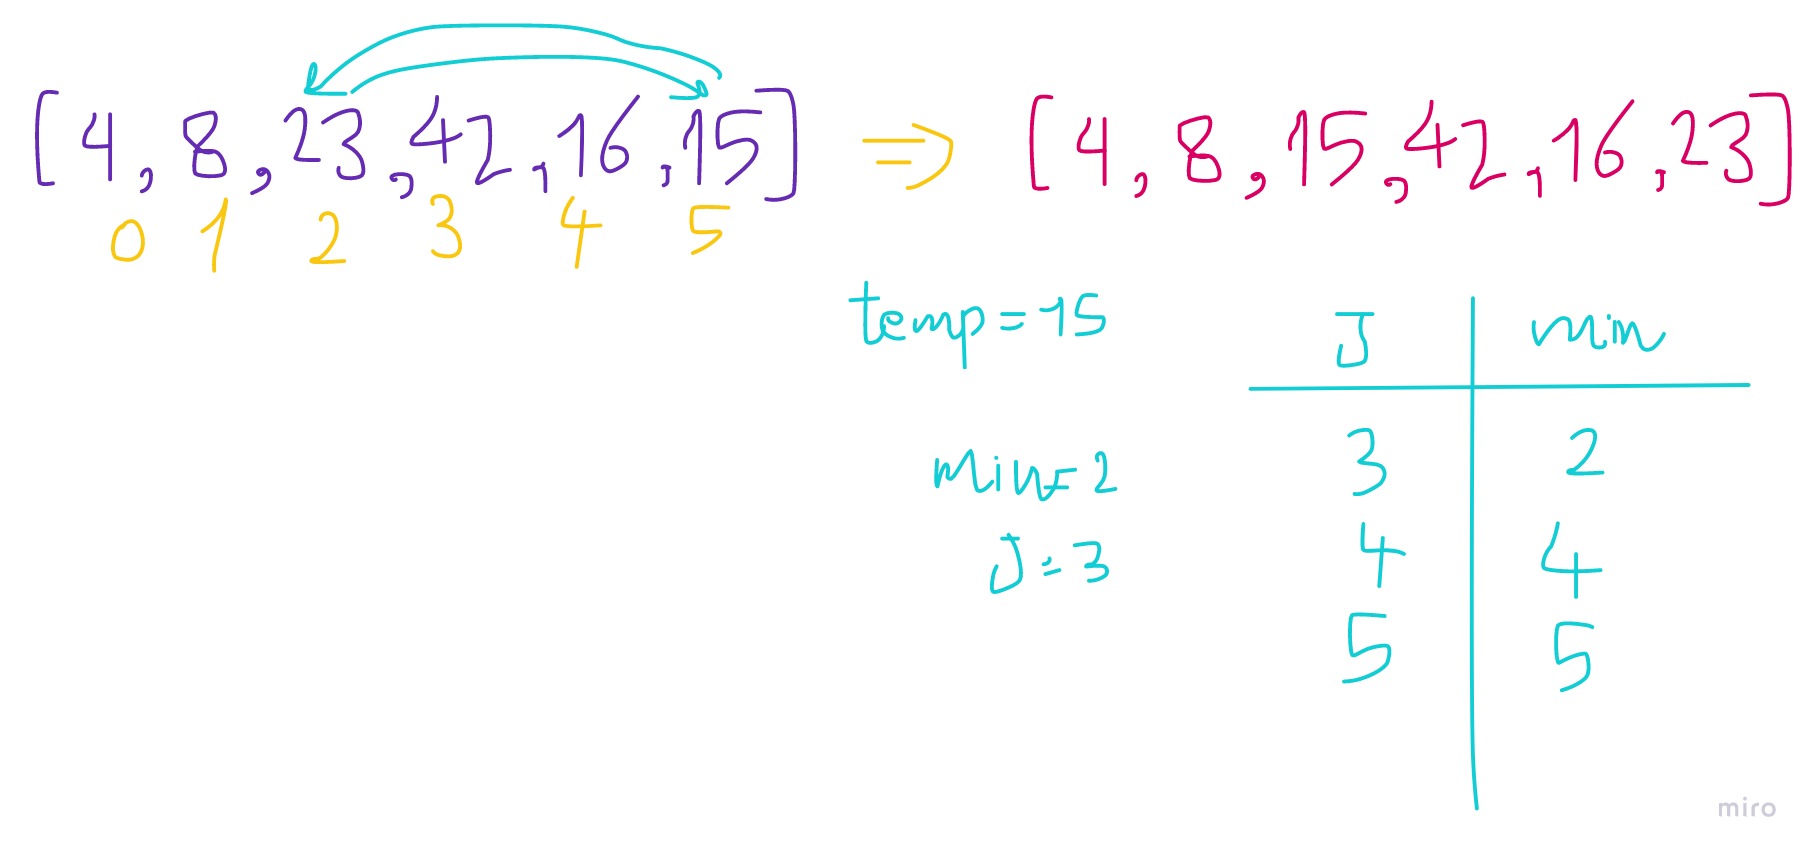 [4, 8, 23, 42, 16, 15] ⇒ [4, 8, 15, 42, 16, 23]
0 1 2 3 4 5
temp = 15
min = 2
J = 3
J min
3 2
4 4
5 5
miro